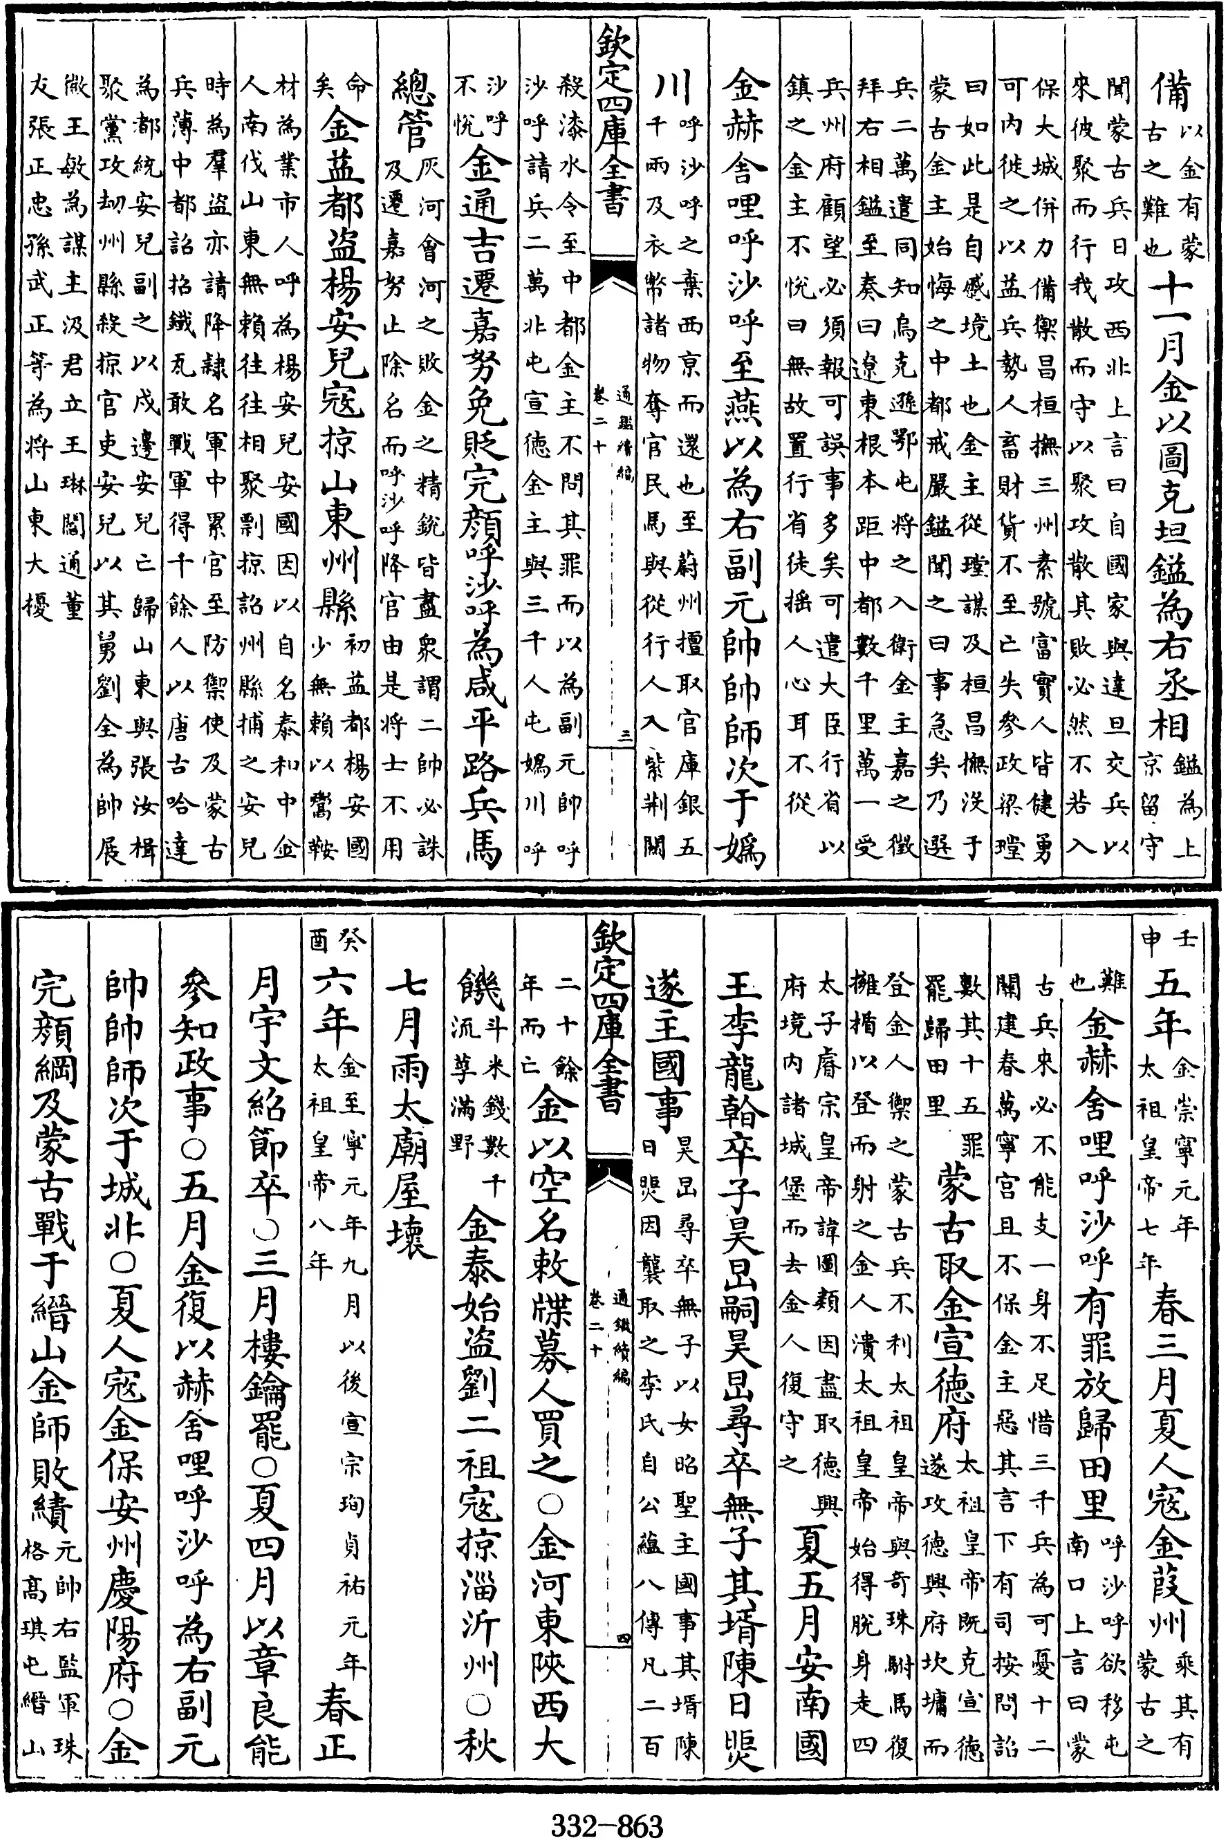 備以金有蒙
古之難也十一月金以圖克坦鎰為右丞相鎰為上
京留守
聞蒙古兵日攻西北上言曰自國家與違旦交兵以
來彼聚而行我散而守以聚攻散其敗必然不若入
保大城併力備禦昌桓撫三州素號富實人皆健勇
可内徙之以益兵勢人畜財貨不至亡失參政梁瑭
曰如此是自蹙境土也金主從瑭謀及桓昌撫沒于
蒙古金主始悔之中都戒嚴鎰聞之曰事急矣乃選
兵二萬遣同知烏克遜鄂屯將之入衛金主嘉之徵
拜右相鎰至奏曰遼東根本距中都數千里萬一受
兵州府顧望必須報可誤事多矣可遣大臣行省以
鎮之金主不悅曰無故置行省徒揺人心耳不從
金赫舍哩呼沙呼至燕以為右副元帥帥師次于嬀
川呼沙呼之棄西京而還也至蔚州擅取官庫銀五
千兩及衣幣諸物奪官民馬與從行人入紫荆關
欽定四庫全書
通鑑續編
卷二十
三
殺淶水令至中都金主不問其罪而以為副元帥呼
沙呼請兵二萬北屯宣徳金主與三千人屯嬀川呼
沙呼
不悅金通吉遷嘉努免貶完顔呼沙呼為咸平路兵馬
總管灰河會河之敗金之精銳皆盡衆謂二帥必誅
及遷嘉努止除名而呼沙呼降官由是将士不用
命
矣金益都盜楊安兒寇掠山東州縣初益都楊安國
少無賴以鬻鞍
材為業市人呼為楊安兒安國因以自名泰和中金
人南伐山東無賴往往相聚剽掠詔州縣捕之安兒
時為羣盜亦請降隷名軍中累官至防禦使及蒙古
兵薄中都詔招鐵瓦敢戰軍得千餘人以唐古哈達
為都統安兒副之以戍邊安兒亡歸山東與張汝楫
聚黨攻刼州縣殺掠官吏安兒以其舅劉全為帥展
㣲王敏為謀主汲君立王琳閻通董
友張正忠孫武正等為将山東大擾
壬
申五年金崇寧元年
太祖皇帝七年春三月夏人寇金葭州乘其有
蒙古之
難
也金赫舍哩呼沙呼有罪放歸田里呼沙呼欲移屯
南口上言曰蒙
古兵來必不能支一身不足惜三千兵為可憂十二
關建春萬寧宮且不保金主惡其言下有司按問詔
數其十五罪
罷歸田里蒙古取金宣德府太祖皇帝既克宣徳
遂攻德興府坎墉而
登金人禦之蒙古兵不利太祖皇帝與奇珠駙馬復
擁楯以登而射之金人潰太祖皇帝始得脫身走四
太子睿宗皇帝諱圖類因盡取德興
府境内諸城堡而去金人復守之夏五月安南國
王李龍翰卒子昊旵嗣昊旵尋卒無子其壻陳日煚
遂主國事昊旵尋卒無子以女昭聖主國事其壻陳
日煚因襲取之李氏自公藴八傳凡二百
欽定四庫全書
通鑑續編
卷二十
四
二十餘
年而亡金以空名敕牒募人買之○金河東陝西大
饑斗米錢數千
流莩滿野金泰始盜劉二祖寇掠淄沂州○秋
七月雨太廟屋壞
癸
酉六年金至寧元年九月以後宣宗珣貞祐元年
太祖皇帝八年春正
月宇文紹節卒○三月樓鑰罷○夏四月以章良能
參知政事○五月金復以赫舍哩呼沙呼為右副元
帥帥師次于城北○夏人寇金保安州慶陽府○金
完顔綱及蒙古戰于縉山金師敗績元帥右監軍珠
格髙琪屯縉山
332-863